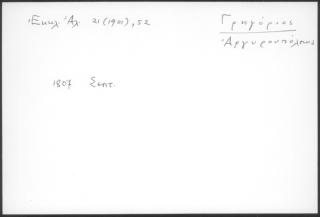 Ἐκκλ. Ἀλ. 21 (1901), 52
Γρηγόριος
Ἀργυρουπόλεως
1807 Σεπτ.